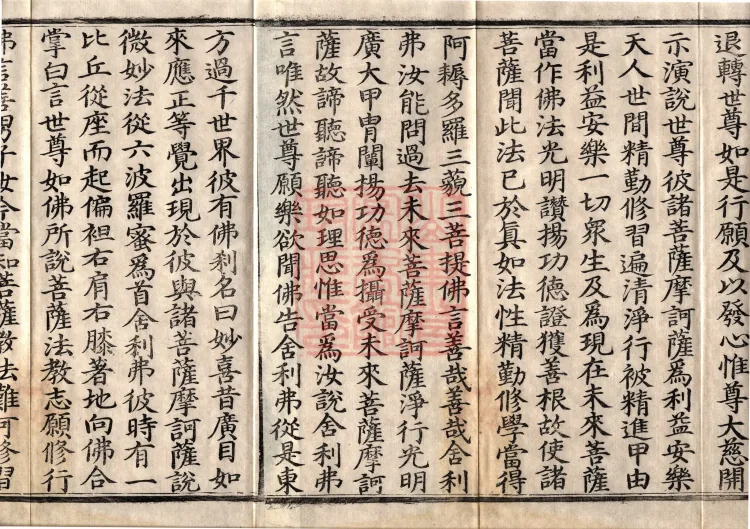 退轉世尊如是行願及以發心惟尊大慈開
示演說世尊彼諸菩薩摩訶薩爲利益安樂
天人世間精勤修習遍清淨行被精進甲由
是利益安樂一切衆生及爲現在未來菩薩
當作佛法光明讚揚功德證獲善根故使諸
菩薩聞此法已於眞如法性精勤修學當得
阿耨多羅三藐三菩提佛言善哉善哉舍利
弗汝能問過去未來菩薩摩訶薩淨行光明
廣大甲胄闡揚功德爲攝受未來菩薩摩訶
薩故諦聽諦聽如理思惟當爲汝說舍利弗
言唯然世尊願樂欲聞佛告舍利弗從是東
方過千世界彼有佛刹名曰妙喜昔廣目如
來應正等覺出現於彼與諸菩薩摩訶薩說
微妙法從六波羅蜜爲首舍利弗彼時有一
比丘從座而起偏袒右肩右膝著地向佛合
掌白言世尊如佛所說菩薩法教志願修行
弗言善男子汝今當知菩薩教法難可修習